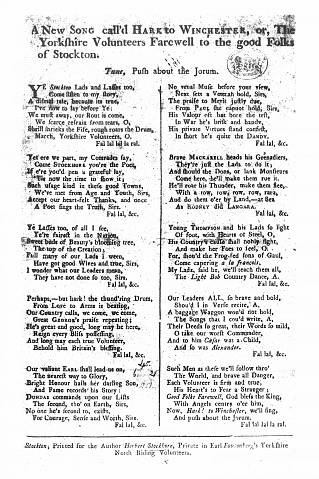 A New Song call'd Hark to Winchester, or, The
Yorkshire Volunteers Farewell to the good Folks
of Stockton.
Tune, Push about the Jorum.
YE Stockton Lads and Lasses too,
Come listen to my story,
A dismal tale, because its true,
I've now to lay before Ye:
We must away, our Rout is come,
We scarce refrain from tears, O,
Shrill shrieks the Fife, rough roars the Drum,
March, Yorkshire Volunteers, O.
Fal lal lal la ral.
Yet ere we part, my Comrades say,
Come Stockshore you're the Poet,
If e'er you'd pen a grateful lay,
'Tis now the time to show it;
Such usage kind in these good Towns,
We've met from Age and Youth, Sirs,
Accept our heart-felt Thanks, and once
A Poet sings the Truth, Sirs.
Fal lal, &c.
Ye Lasses too, of all I see,
Ye're fairest in the Nation,
Sweet buds of Beauty's blooming tree,
The top of the Creation;
Full many of our Lads I ween,
Have got good Wives and true, Sirs,
I wonder what our Leaders mean,
They have not done so too, Sirs.
Fal lal, &c.
Perhaps,—but hark! the thund'ring Drum,
From Love to Arms is beating,
Our Country calls, we come, we come,
Great George's praise repeating:
He's great and good, long may he here,
Reign every bliss possessing,
And long may each true Volunteer,
Behold him Britain's blessing.
Fal lal, &c.
Our valiant Earl shall lead us on,
The nearest way to Glory,
Bright Honour hails her darling Son,
And Fame records his Story:
Dundas commands upon our Lists
The second, tho' on Earth, Sirs,
No one he's second to, exists,
For Courage, Sense and Worth, Sirs.
Fal lal, &c.
No venal Muse before your view,
Next sets a Veteran bold, Sirs,
The praise to Merit justly due,
From Paul she cannot hold, Sirs,
His Valour oft has bore the test,
In War he's brisk and handy,
His private Virtues stand confest,
In short he's quite the Dandy.
Fal lal, &c.
Brave Mackarell heads his Grenadiers,
They're just the Lads to do it,
And should the Dons, or lank Monsieurs
Come here, he'll make them rue it,
He'll rouse his Thunder, make them flee,
With a row, row, row, row, row,
And do them o'er by Land,—at Sea
As Rodney did Langara.
Fal lal, &c.
Young Thompson and his Lads so light
Of Foot, with Hearts of Steel, O,
His Country's cause shall nobly fight,
And make her Foes to feel, O.
For, shou'd the Frog-fed sons of Gaul,
Come capering a la françois,
My Lads, said he, we'll teach them all,
The Light Bob Country Dance, A.
Fal lal, &c.
Our Leaders All, so brave and bold,
Should I in Verse recite, A,
A baggage Waggon wou'd not hold,
The Songs that I cou'd write, A,
Their Deeds so great, their Words so mild,
O take our worst Commander,
And to him Cæsar was a Child,
And so was Alexander.
Fal lal, &c.
Such Men as these we'll follow thro'
The World, and brave all Danger,
Each Volunteer is firm and true,
His Heart's to Fear a Stranger:
Good Folks Farewell, God bless the King,
With Angels centry o'er him,
Now, Hark! to Winchester, we'll sing,
And push about the Jorum.
Fal lal lal la ral.
Stockton, Printed for the Author Herbert Stockhore, Private in Earl Fauconberg's Yorkshire
North Riding Volunteers.